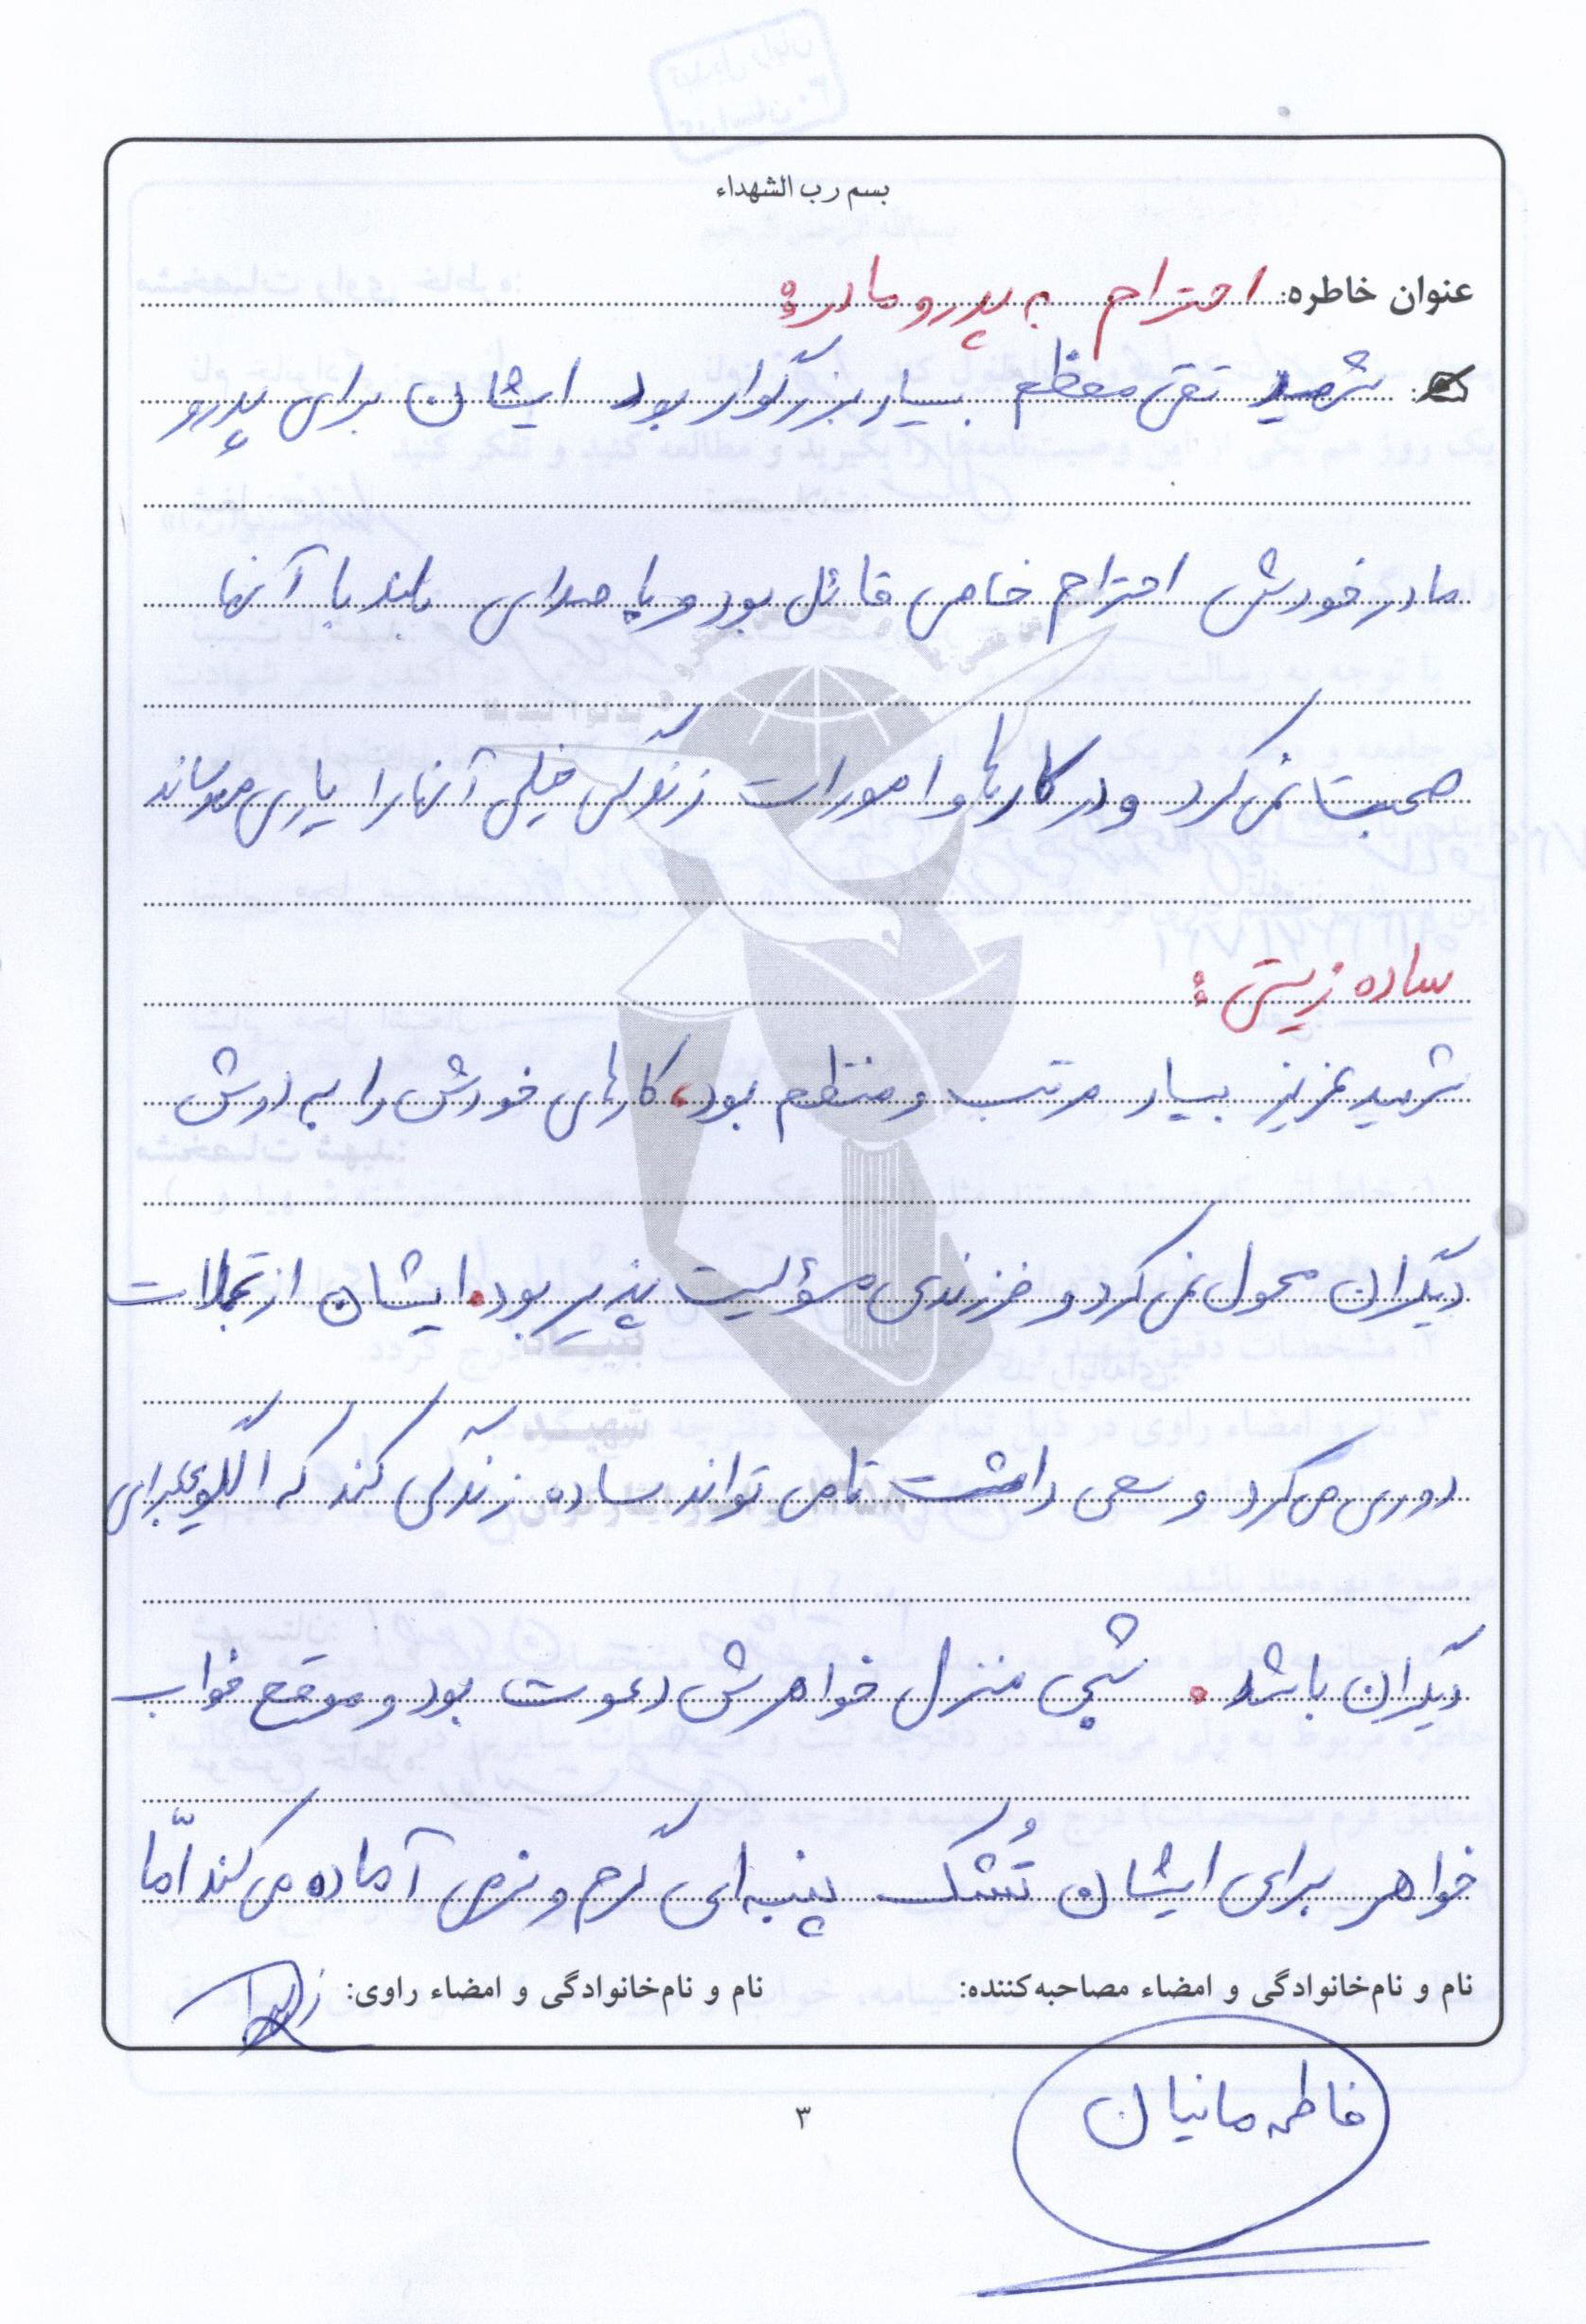 بسم رب الشهداء
عنوان خاطره: احترام به پدر و مادر:
شهید تقی معظم بسیار بزرگوار بود ایشان برای پدر و
مادر خودش احترام خاصی قائل بود و با صدای بلند با آنها
صحبت نمی کرد و در کارها و امورات زندگی خیلی آنها را یاری می رساند
ساده زیستی:
شهید عزیز بسیار مرتب و منظم بود، کارهای خودش را به دوش
دیگران محول نمی کرد و فرزندی مسؤلیت پذیر بود. ایشان از تجملات
دوری می کرد و سعی داشت تا می تواند ساده زندگی کند که الگویی برای
دیگران باشد. شبی منزل خواهرش دعوت بود و موقع خواب
خواهر برای ایشان تُشک پنبه ای گرم و نرمی آماده می کند امّا
نام و نام‌خانوادگی و امضاء مصاحبه‌کننده: نام و نام‌خانوادگی و امضاء راوی:
فاطمه مانیان
۳